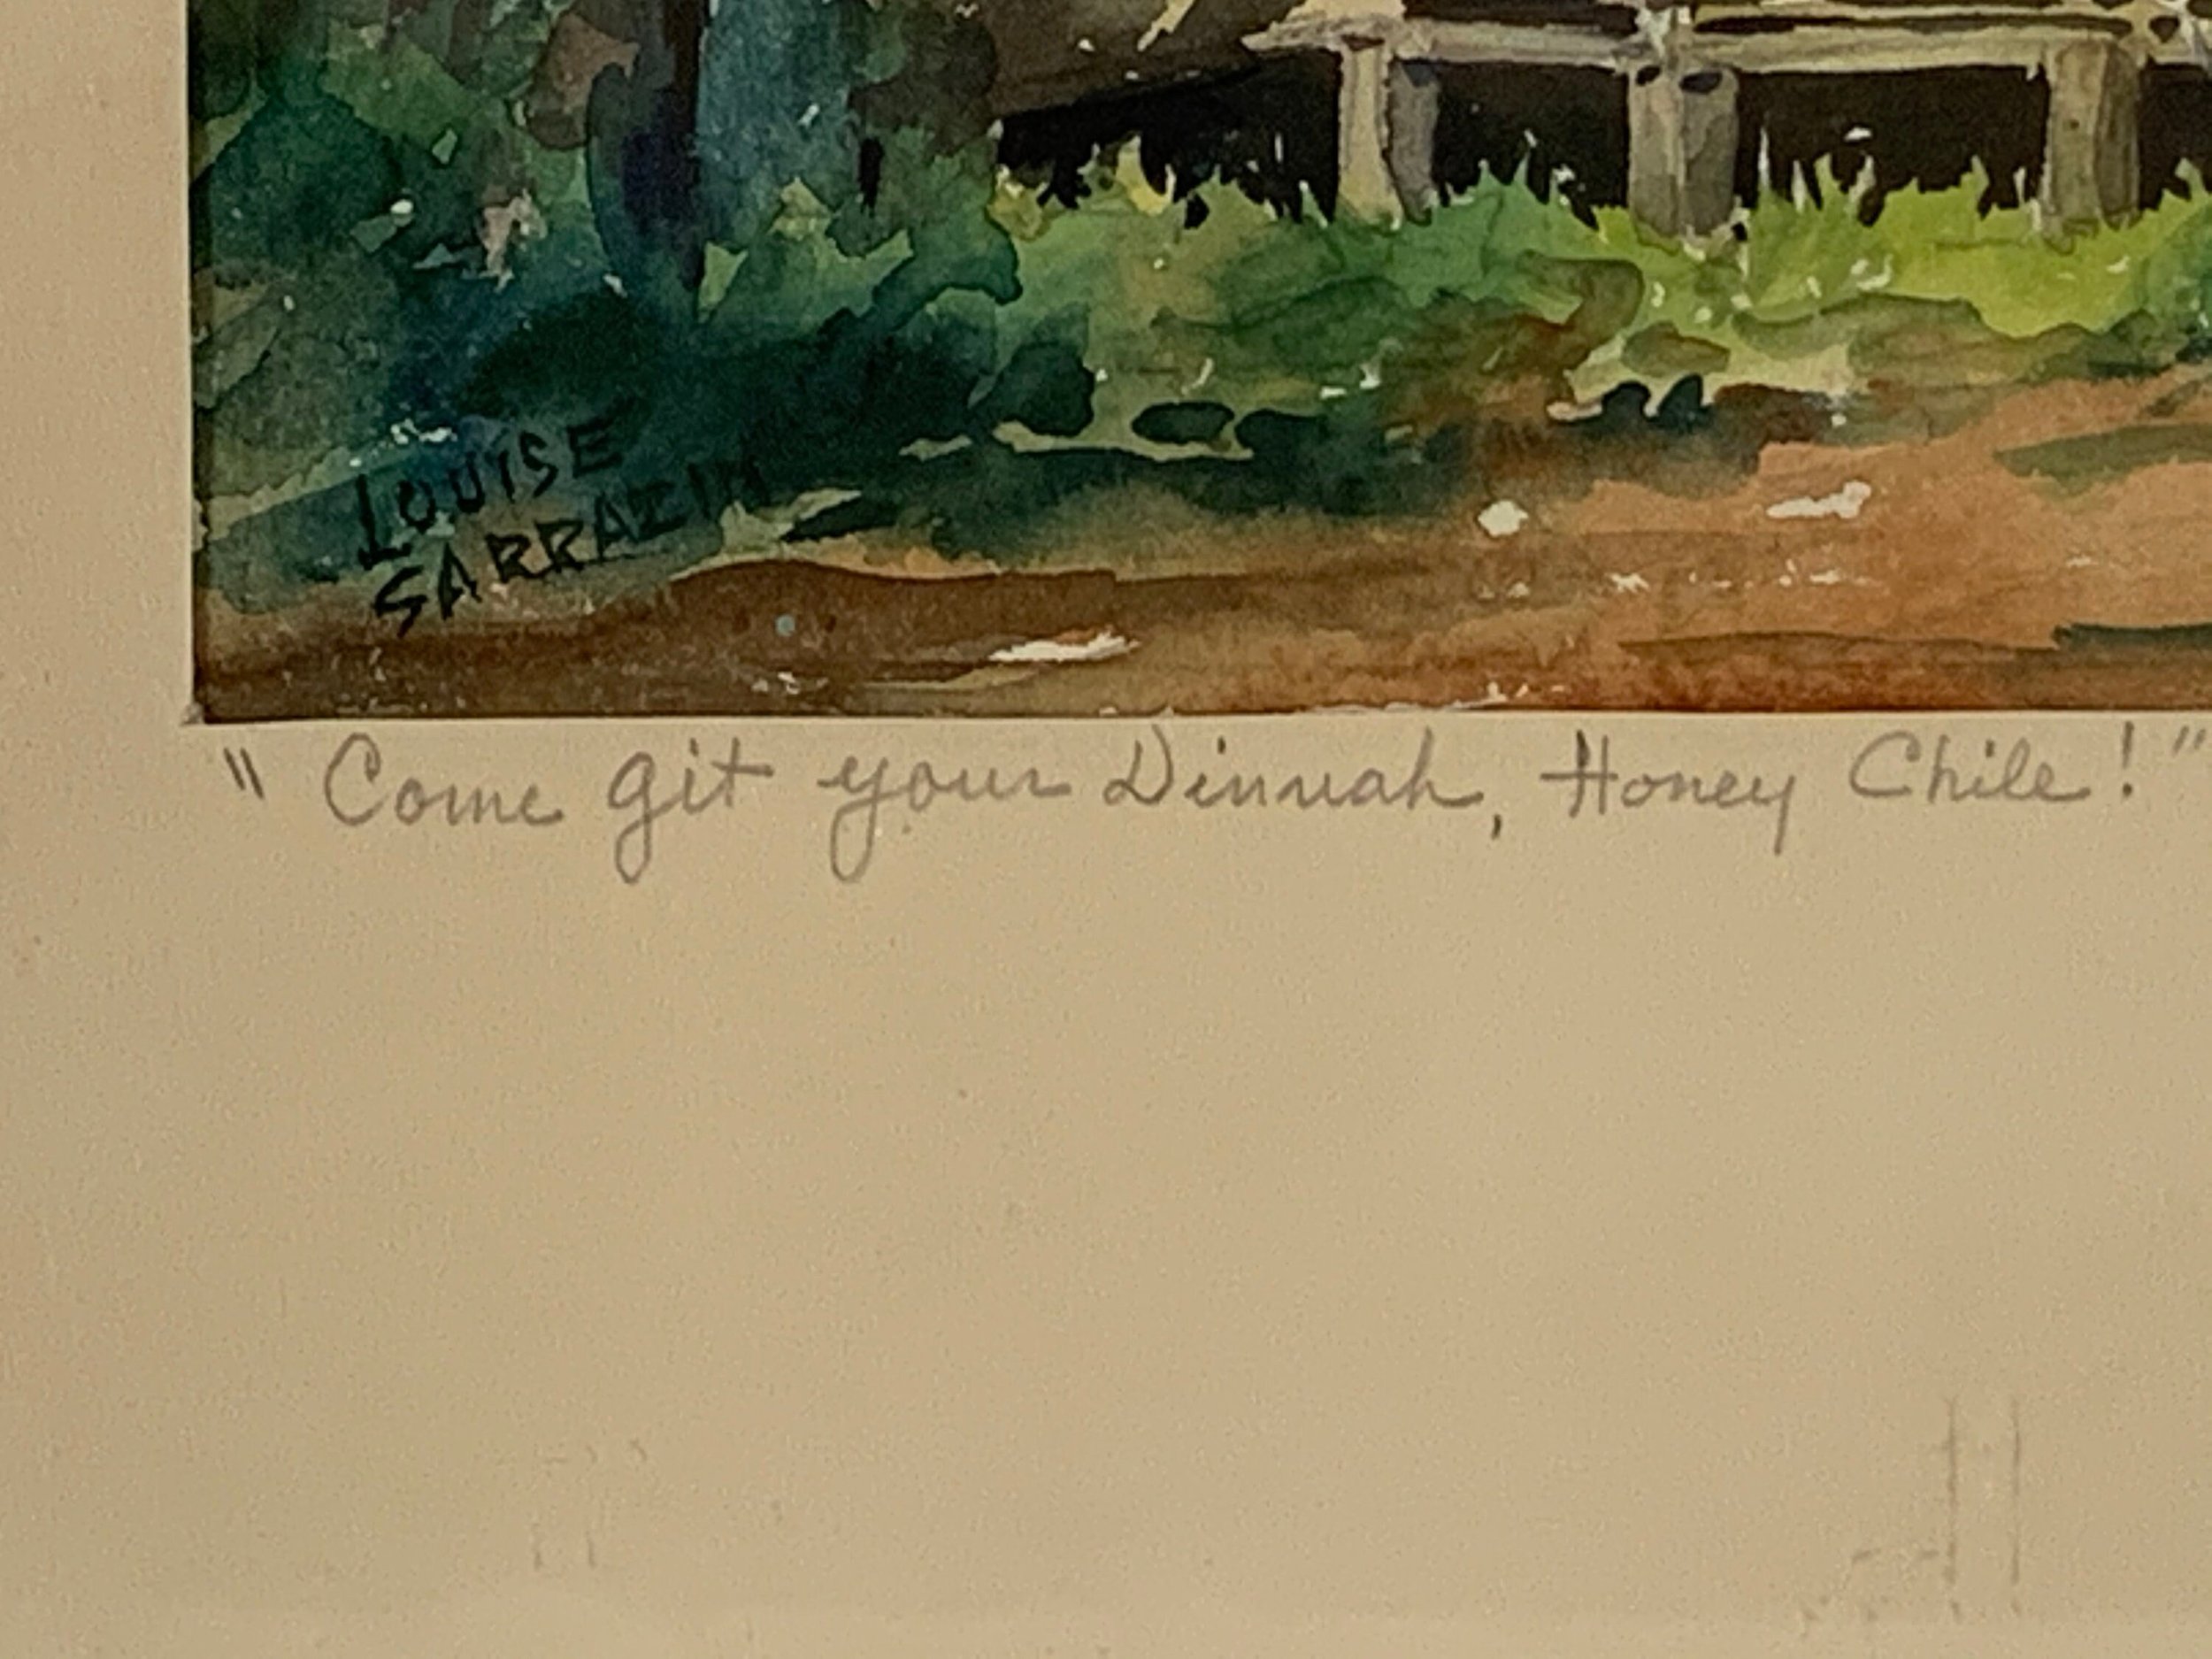 LOUISE
SARRAZIN
" Come git your Dinnah, Honey Chile! "